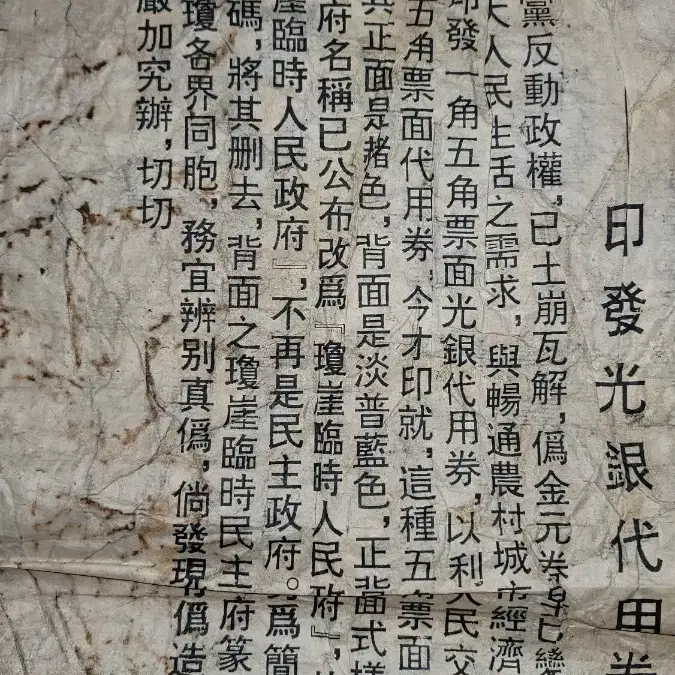 印發光銀代用券
黨反動政權,已土崩瓦解,僞金元券早已變
大人民生活之需求,與暢通農村城市經濟
印發一角五角票面光銀代用券,以利人民交
五角票面代用券,今才印就,這種五角票面
其正面是赭色,背面是淡普藍色,正背面式樣
府名稱已公布改爲『瓊崖臨時人民政府』,
崖臨時人民政府』,不再是民主政府。爲簡
碼,將其删去,背面之瓊崖臨時民主府篆
瓊各界同胞,務宜辨别真僞,倘發現僞造
嚴加究辦,切切